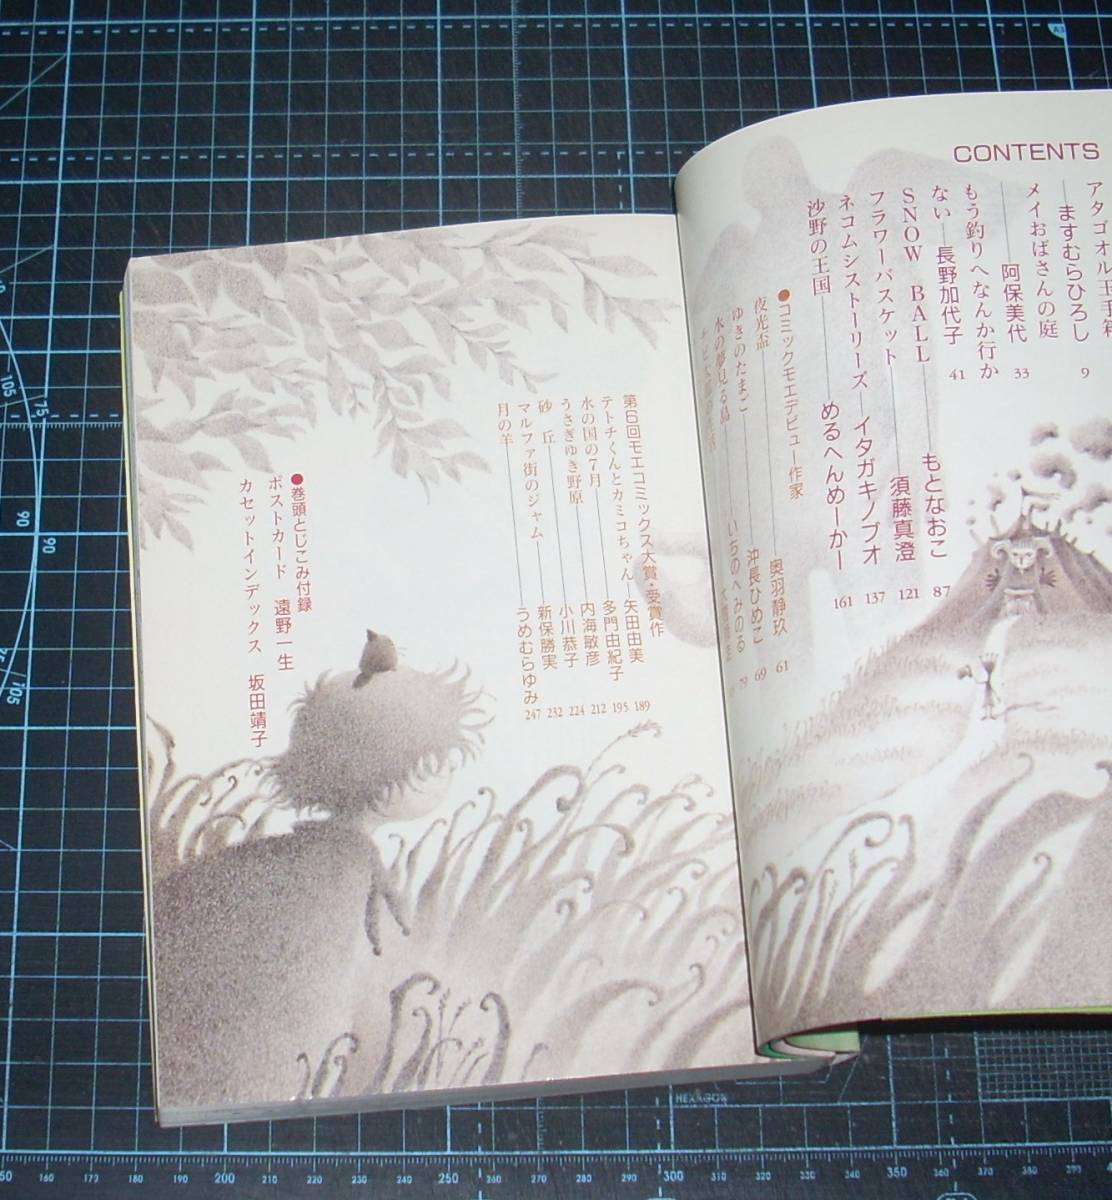 CONTENTS
アタゴオル玉手箱
ますむらひろし
9
メイおばさんの庭
阿保美代
33
もう釣りへなんか行か
ない
長野加代子
41
SNOW BALL
もとなおこ
87
フラワーバスケット
須藤真澄
121
ネコムシストーリーズ
イタガキノブオ
137
沙野の王国
めるへんめーかー
161
●コミックモエデビュー作家
夜光盃
奥羽静玖
61
ゆきのたまご
沖長ひめこ
69
水の夢見る島
いちのへみのる
79
第6回モエコミックス大賞・受賞作
テトチくんとカミコちゃん
矢田由美
189
水の国の7月
多門由紀子
195
うさぎゆき野原
内海敏彦
212
砂丘
小川恭子
224
マルファ街のジャム
新保勝実
232
月の羊
うめむらゆみ
247
●巻頭とじこみ付録
ポストカード 遠野一生
カセットインデックス 坂田靖子
HEXAGON